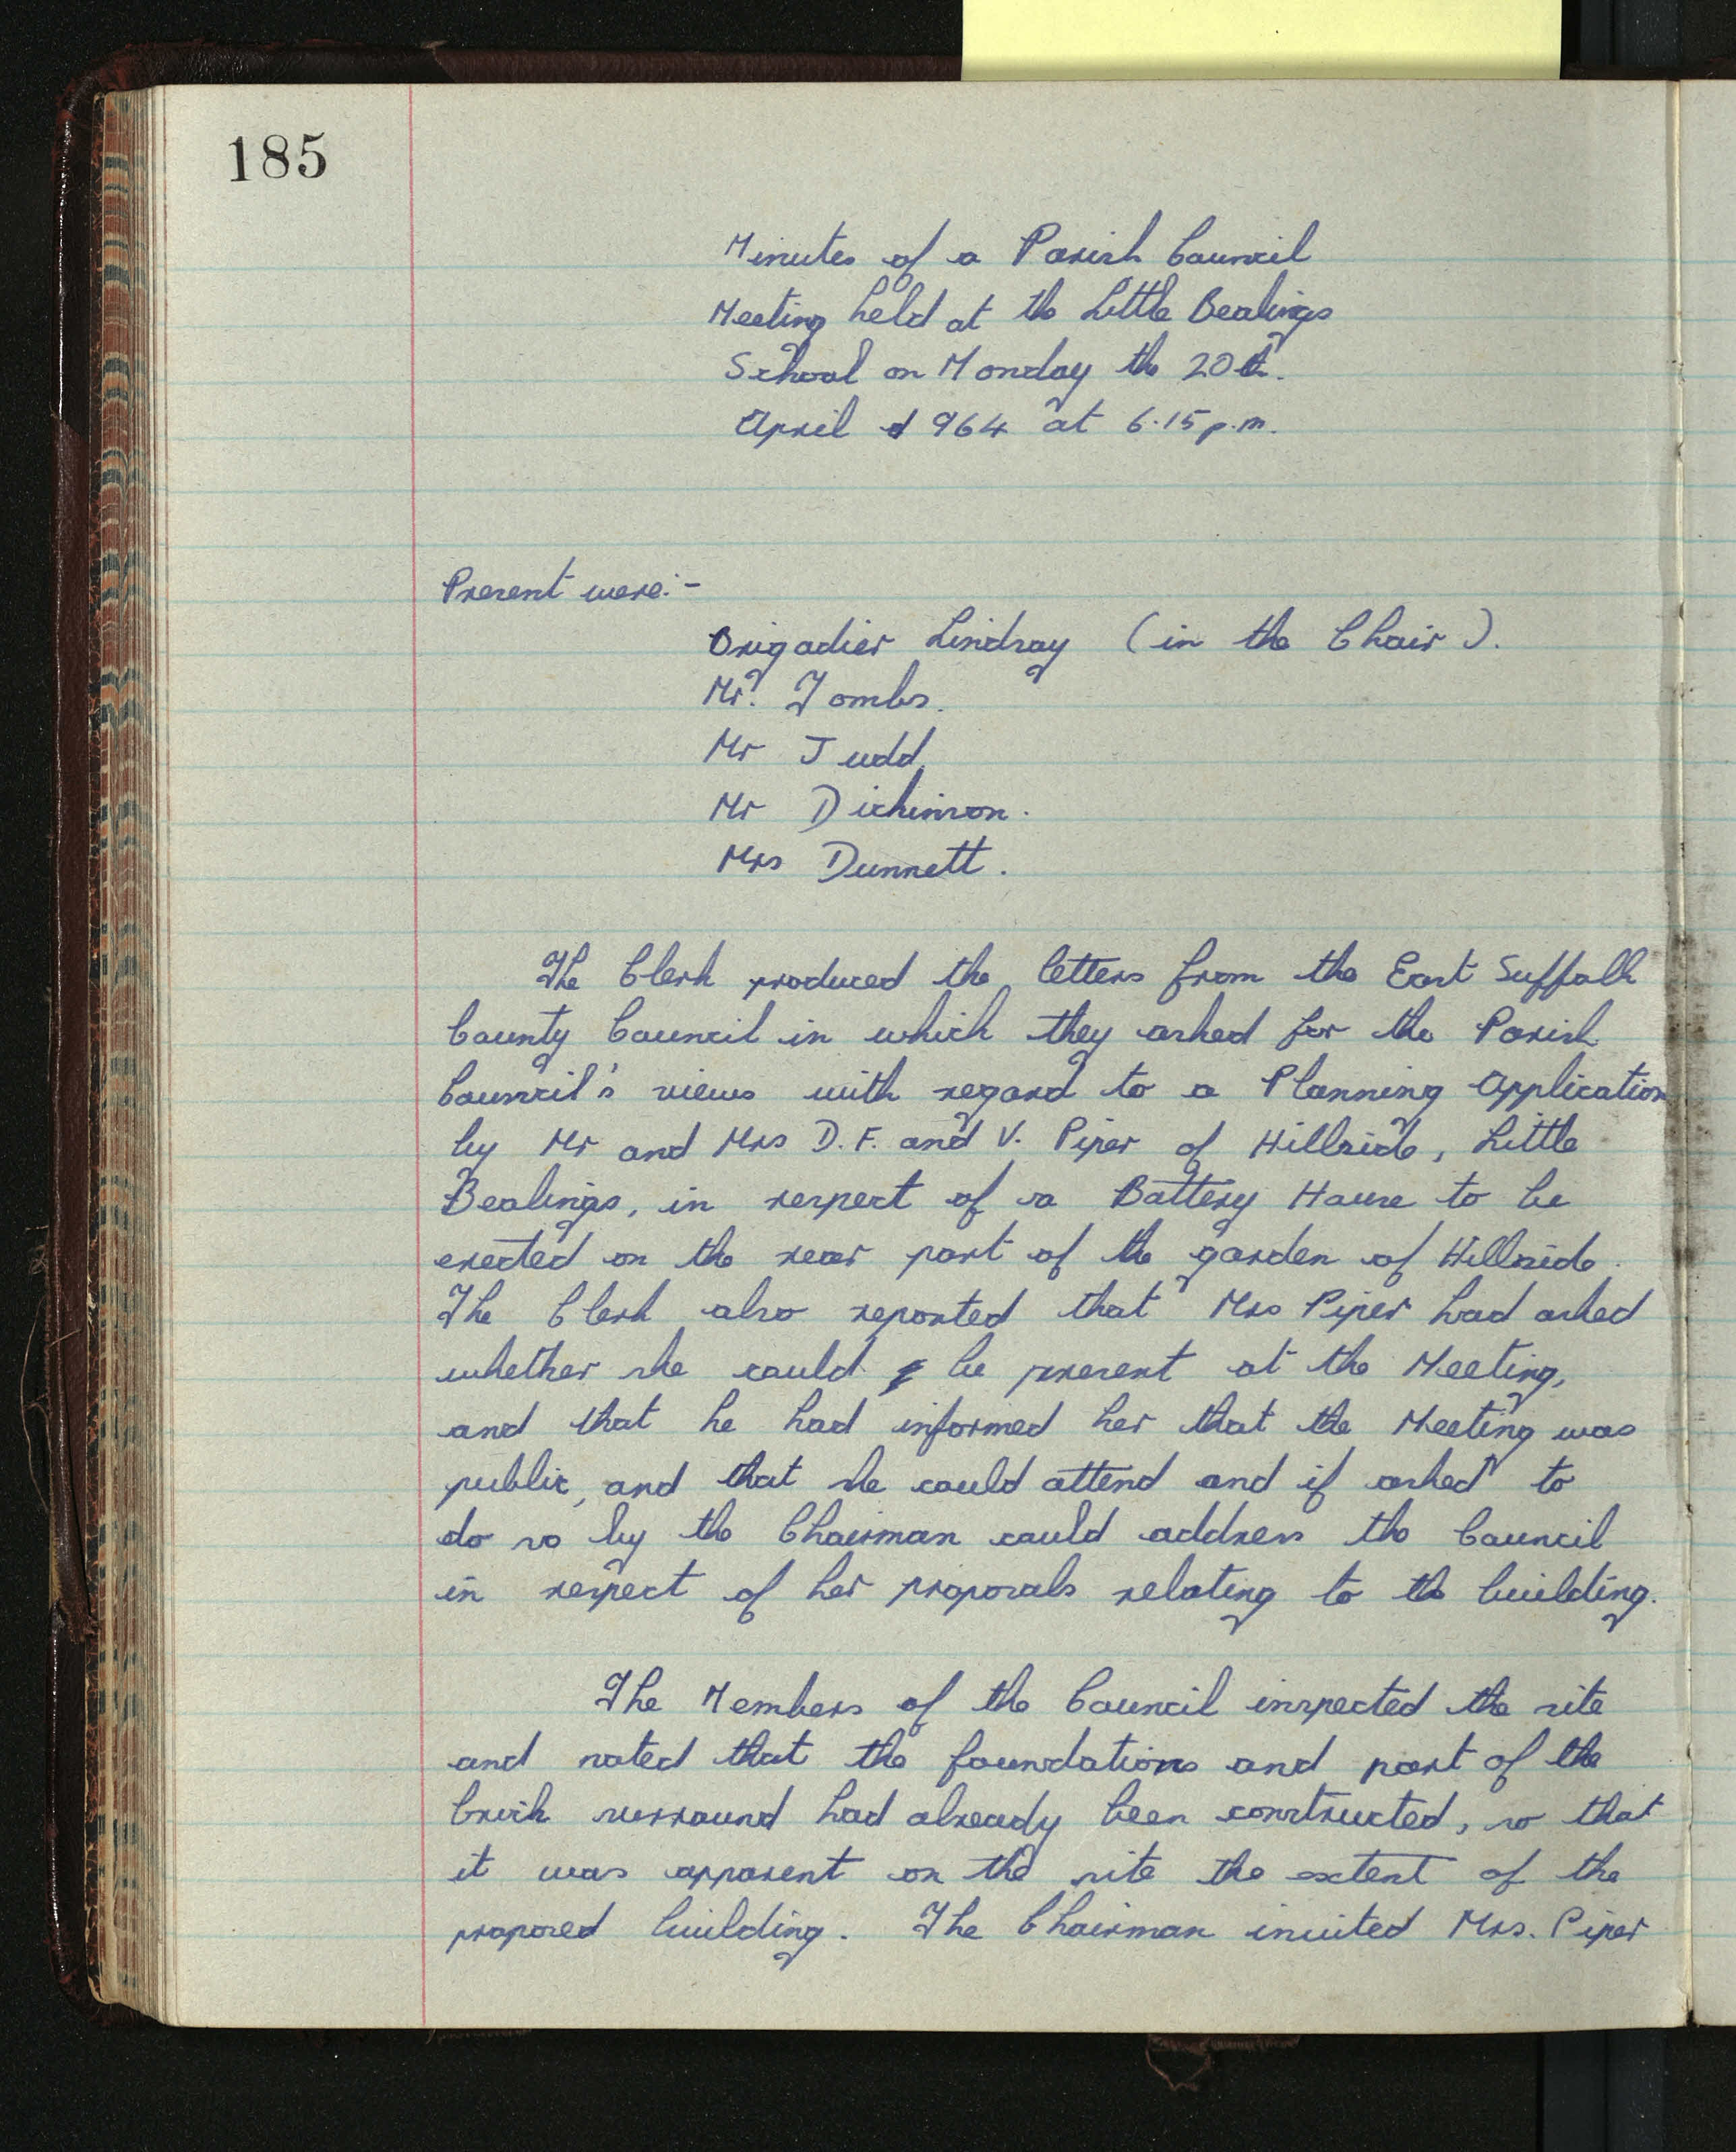 185
Minutes of a Parish Council
Meeting held at the Little Bealings
School on Monday the 20th.
April 1964 at 6.15 p.m.
Present were:-
Brigadier Lindsay (in the Chair).
Mr. Tombs.
Mr Judd.
Mr Dickinson.
Mrs Dunnett.
The Clerk produced the letters from the East Suffolk
County Council in which they asked for the Parish
Council's views with regard to a Planning Application
by Mr and Mrs D. F. and V. Piper of Hillside, Little
Bealings, in respect of a Battery House to be
erected on the rear part of the garden of Hillside.
The Clerk also reported that Mrs Piper had asked
whether she could be present at the Meeting,
and that he had informed her that the Meeting was
public, and that she could attend and if asked to
do so by the Chairman could address the Council
in respect of her proposals relating to the building.
The Members of the Council inspected the site
and noted that the foundations and part of the
brick surround had already been constructed, so that
it was apparent on the site the extent of the
proposed building. The Chairman invited Mrs. Piper